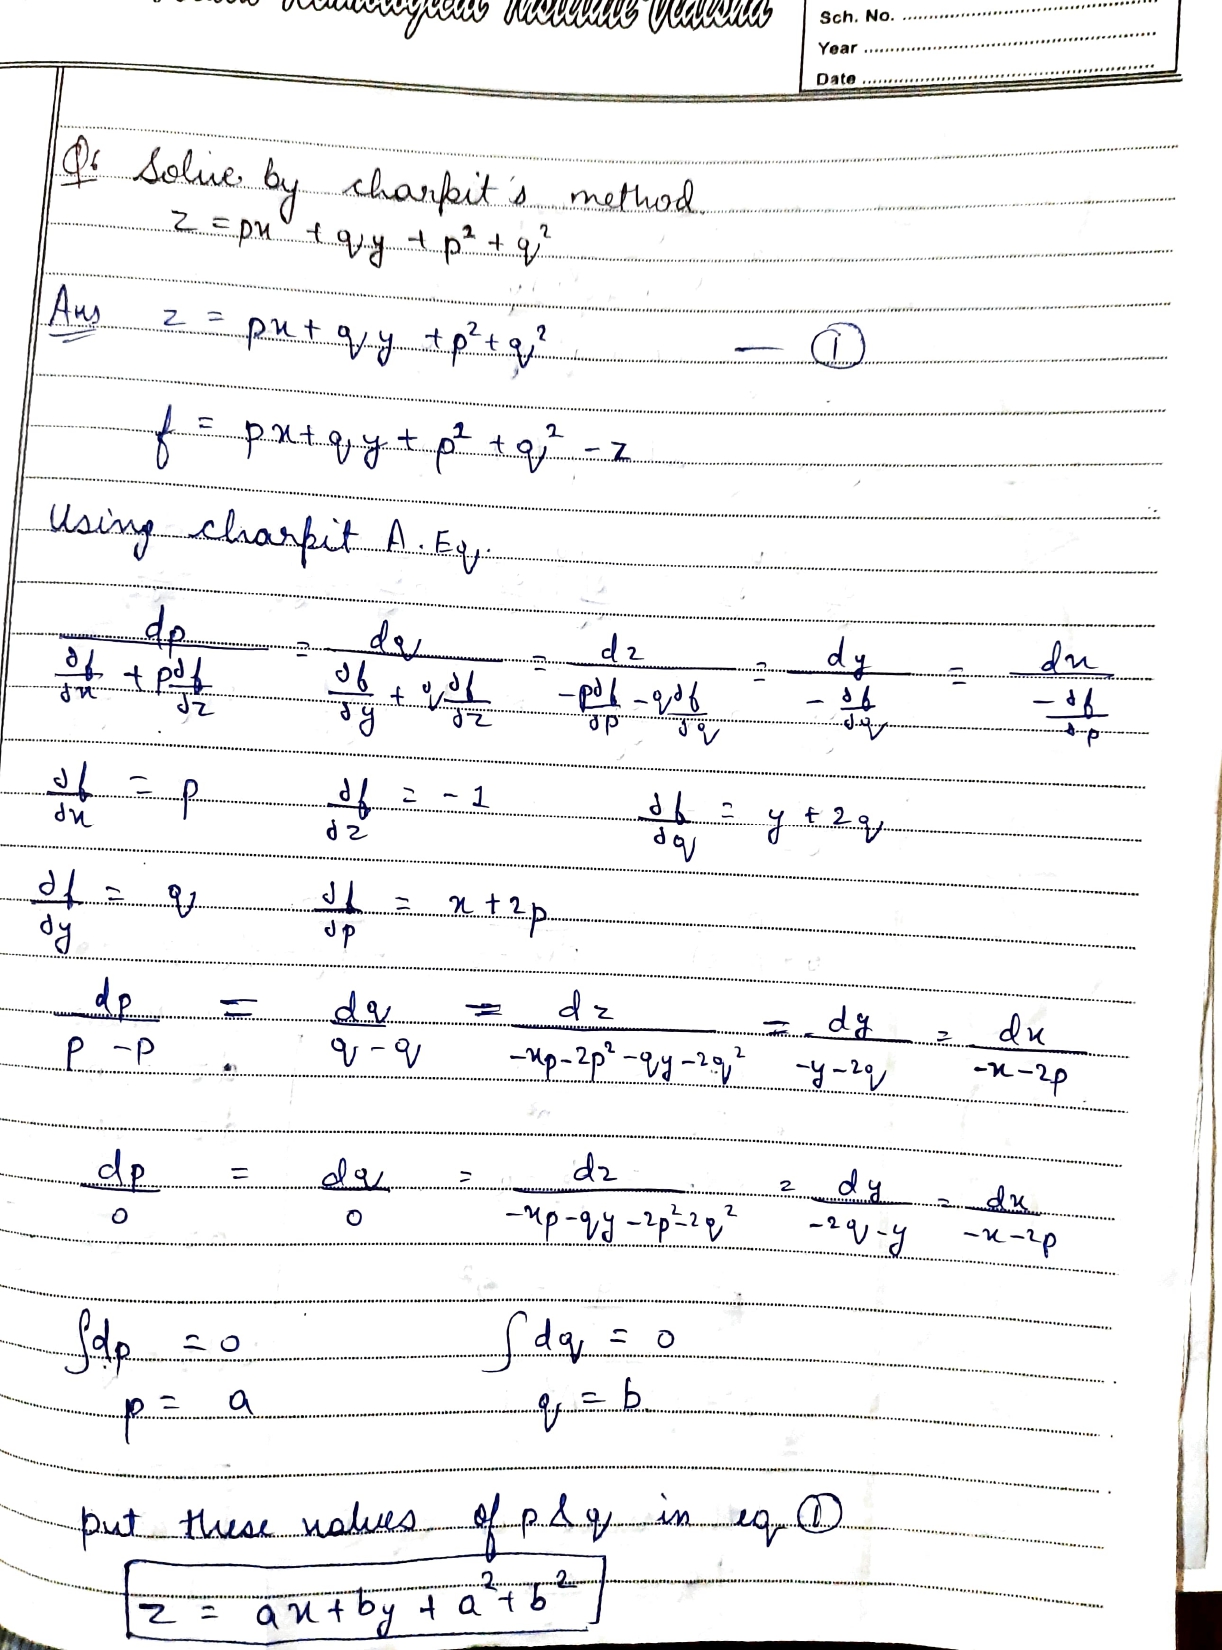 Institute Vidisha
Sch. No. ..........
Year ..........
Date ..........
Q: Solve by charpit's method.
z = px + qy + p² + q²
Ans z = px + qy + p² + q² — ①
f = px + qy + p² + q² - z
Using charpit A. Eq.
dp/(∂f/∂x + p∂f/∂z) = dq/(∂f/∂y + q∂f/∂z) = dz/(-p∂f/∂p - q∂f/∂q) = dy/(-∂f/∂q) = dx/(-∂f/∂p)
∂f/∂x = p ∂f/∂z = -1 ∂f/∂q = y + 2q
∂f/∂y = q ∂f/∂p = x + 2p
dp/(p - p) = dq/(q - q) = dz/(-xp - 2p² - qy - 2q²) = dy/(-y - 2q) = dx/(-x - 2p)
dp/0 = dq/0 = dz/(-xp - qy - 2p² - 2q²) = dy/(-2q - y) = dx/(-x - 2p)
∫dp = 0 ∫dq = 0
p = a q = b
put these values of p & q in eq ①
z = ax + by + a² + b²